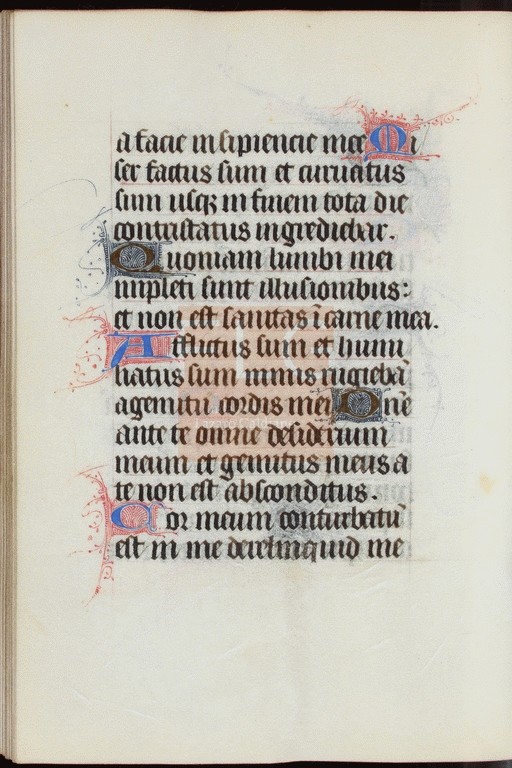 a facie insipiencie mee Mi
ser factus sum et curuatus
sum usqꝫ in finem tota die
contristatus ingrediebar.
Quoniam lumbi mei
impleti sunt illusionibus:
et non est sanitas ī carne mea.
Afflictus sum et humi
liatus sum nimis rugiebā
a gemitu cordis mei Dn̄e
ante te omne desiderium
meum et gemitus meus a
te non est absconditus.
Cor meum conturbatū
est in me dereliquid me